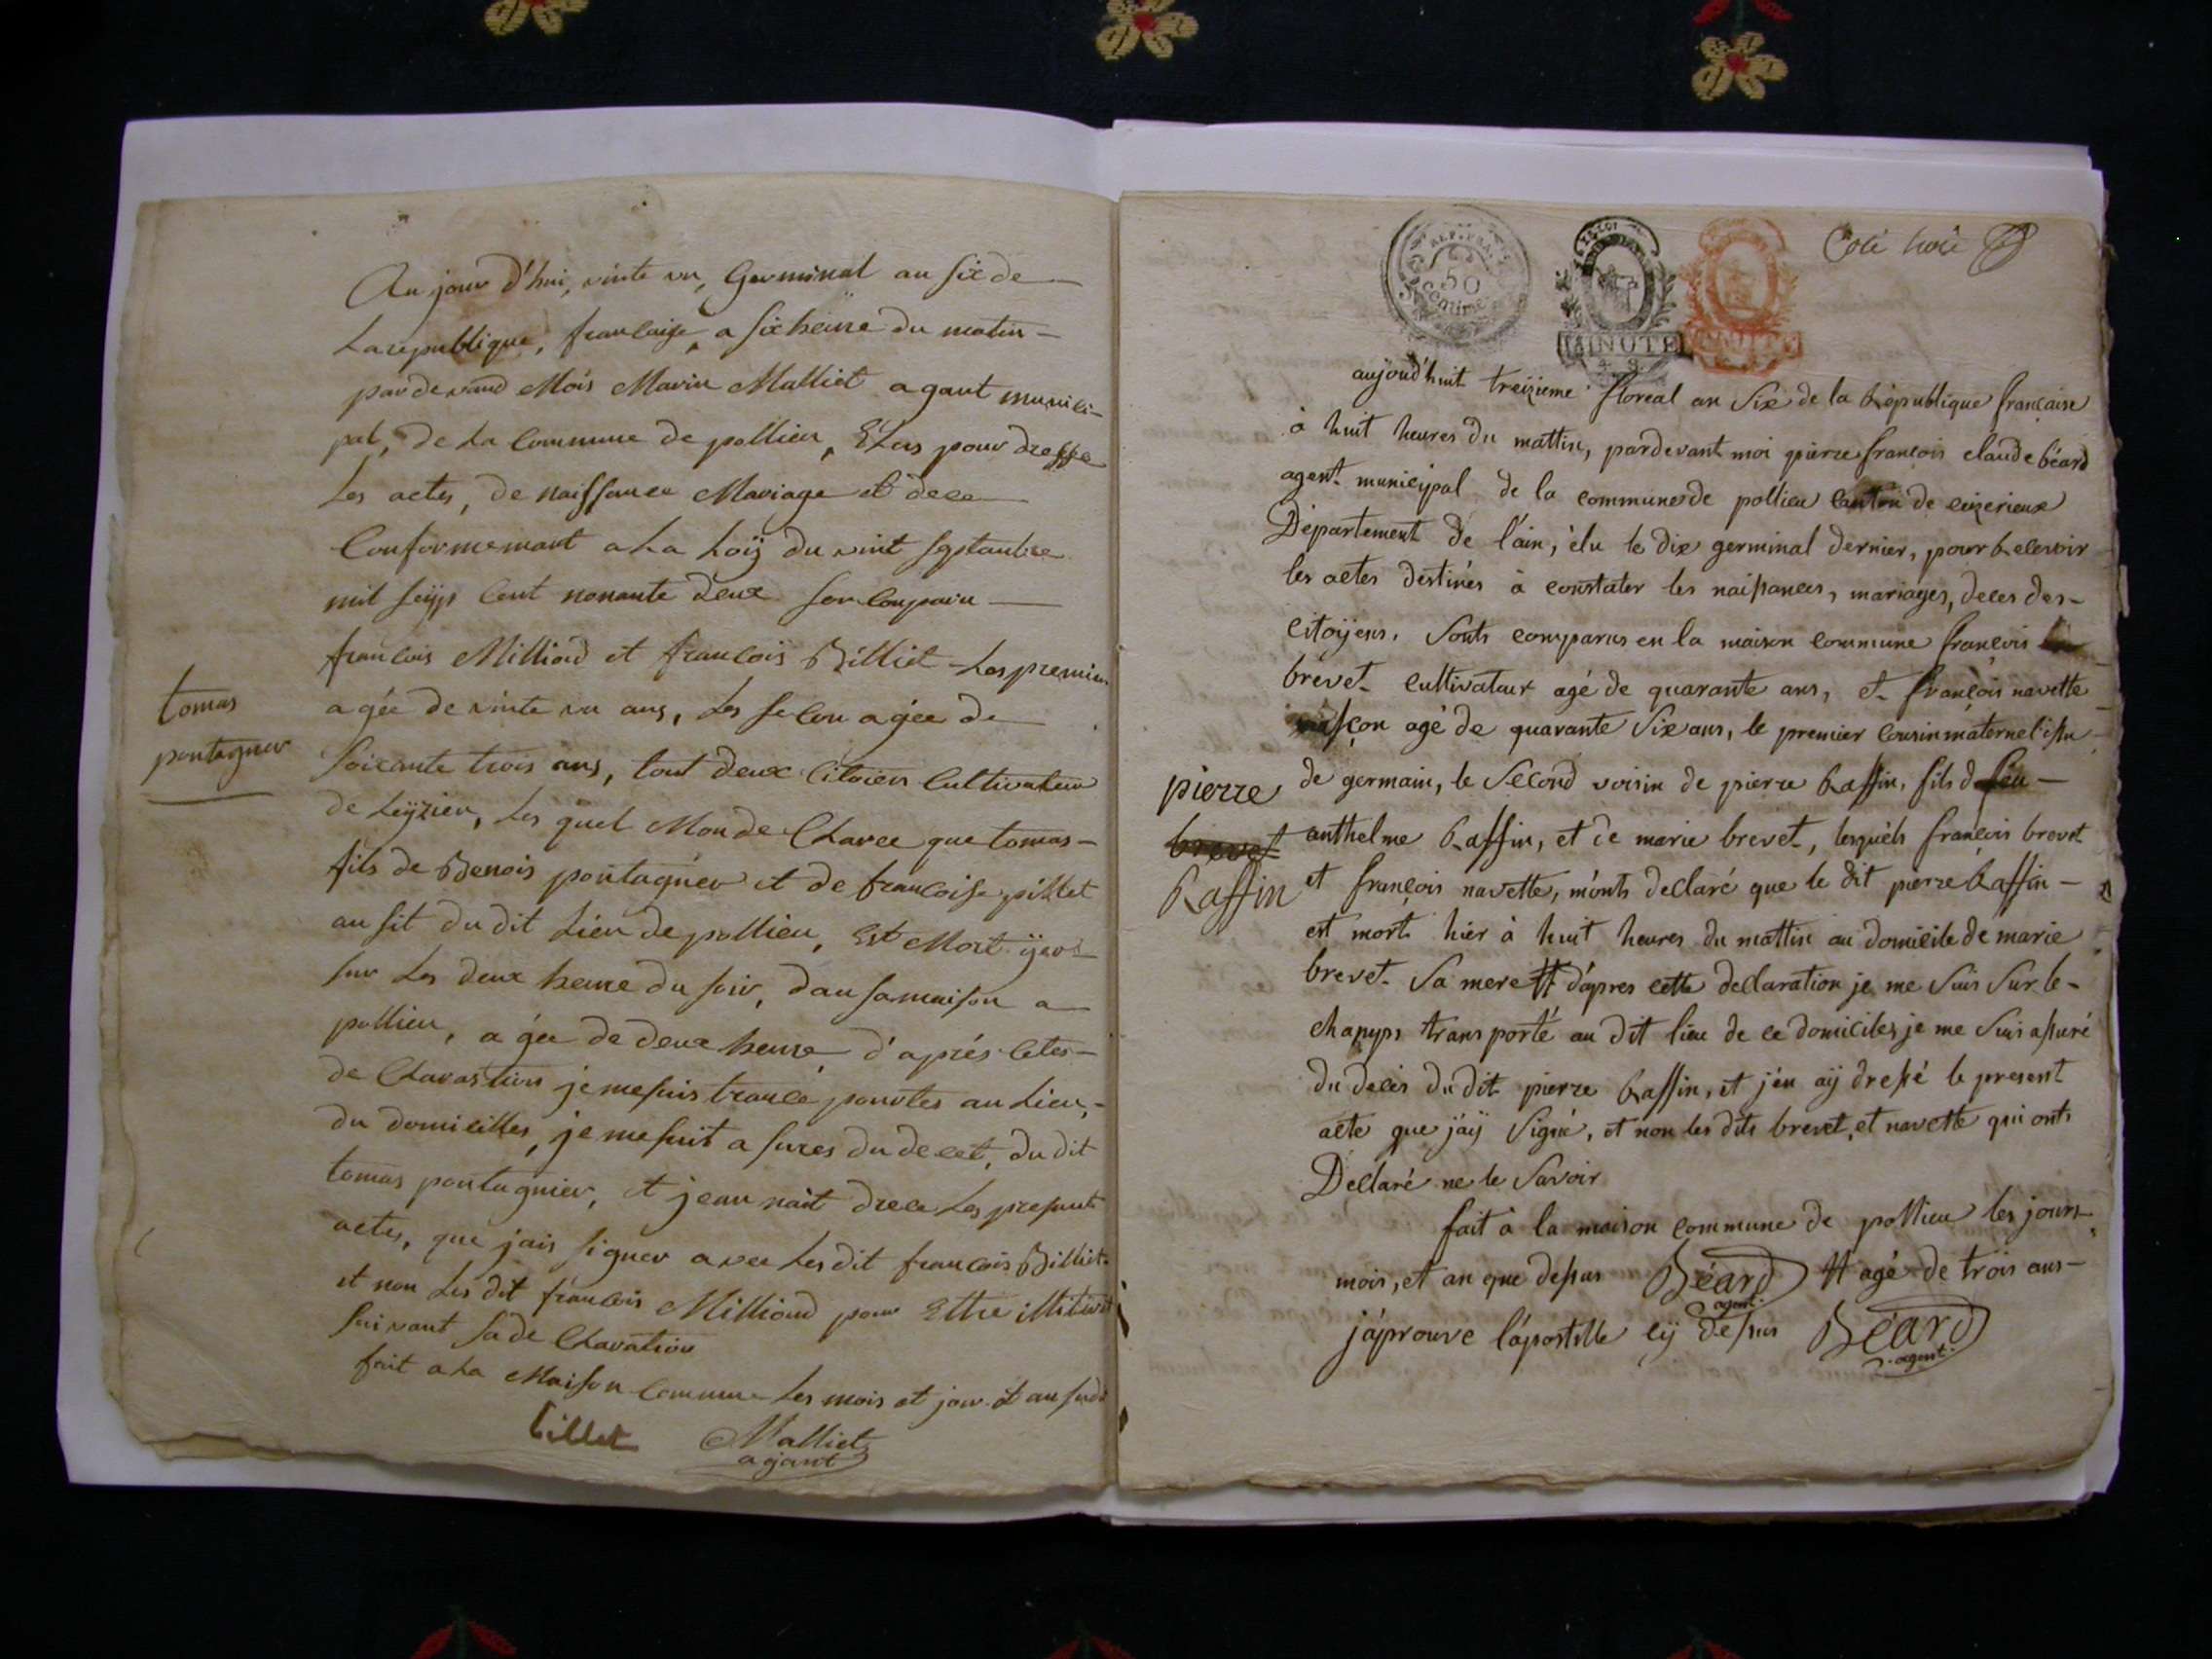 Au jour d'hui, vinte un, Germinal an six de
La republique, francaise, a six heure du matin
par devand Mois Marin Malliet agant munici-
pal, de La Commune de pollieu, Elus pour dresse
Les actes, de naissance Mariage et dece
Conformemant a La Loiÿ du vint septanbre
mil seÿp Cent nonante deux son Conparu
francois Milliand et francoiÿ Billiet Les premier
agée de vinte un ans, Les secon agée de
tomas
pontagner
soixante trois ans, tout deux Citoien Cultivateur
de Leÿzieu, Les quel Mon de Charee que tomas-
fils de Benois pontagner et de francoise pillet
au sit du dit Lieu de pollieu, Est Mort ÿers
sur Les deux heure du soir, dau sa maison a
pollieu, a gée de deux heure, d'aprés cetes-
de Charastion je me suis trance portes au Lieu,-
du domicilles, je me suit a sures du decet, du dit
tomas pontagnier, et jeau nait drece Les presants
actes, que jais signer avec Les dit francois Billiet
et non Les dit francois Milliand pour Ettre illiteres
suivant sa de Charation
fait a La Maison Commune Les mois et jour et an sudi
billet Malliet
agant
REP. FRA.
50
Centimes
MINUTE
Coté troié
aujoud'huit treizieme floreal an Six de la République française
à huit heures du mattin, pardevant moi pierre françois claude béard
agent municipal de la commune de pollieu Canton de ceizerieux
Département de l'ain, élu le dix germinal dernier, pour Recevoir
les actes destinés à constater les naissances, mariages, deces des-
citoÿens. Sonts comparus en la maison commune françois
brevet cultivateur agé de quarante ans, et françois navette
masçon agé de quarante Six ans, le premier cousin maternel issu
de germain, le Second voisin de pierre Raffin, fils de feu
pierre
brevet
Raffin
anthelme Raffin, et de marie brevet, lesquels françois brevet
et françois navette, m'onts declaré que le dit pierre Raffin
est mort hier à huit heures du mattin au domicile de marie
brevet Sa mere # d'apres cette declaration je me Suis Sur le-
champs transporté au dit lieu de ce domicile, je me Suis assuré
du deces du dit pierre Raffin, et j'en aÿ dressé le present
acte que j'aÿ Signé, et non les dits brevet, et navette qui onts
Déclaré ne le Savoir
fait à la maison commune de pollieu les jours
mois, et an que dessus Béard # agé de trois ans-
agent.
j'aprouve l'apostille cÿ dessus Béard
agent.